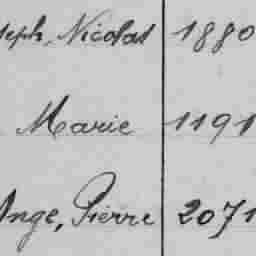 seph, Nicolas 1880
Marie 1191
Ange, Pierre 2071